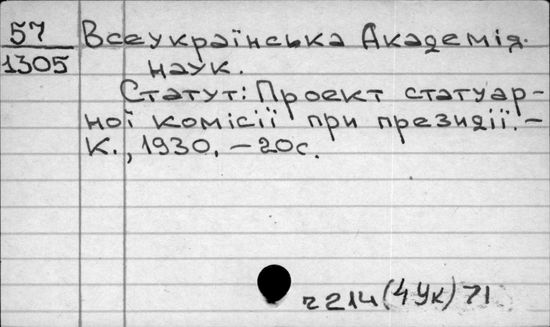 57 Всеукраїнська Академія
1305 наук.
Статут: Проект статуар-
ної комісії при президії. –
К., 1930. – 20с.
ч214(4Ук)71